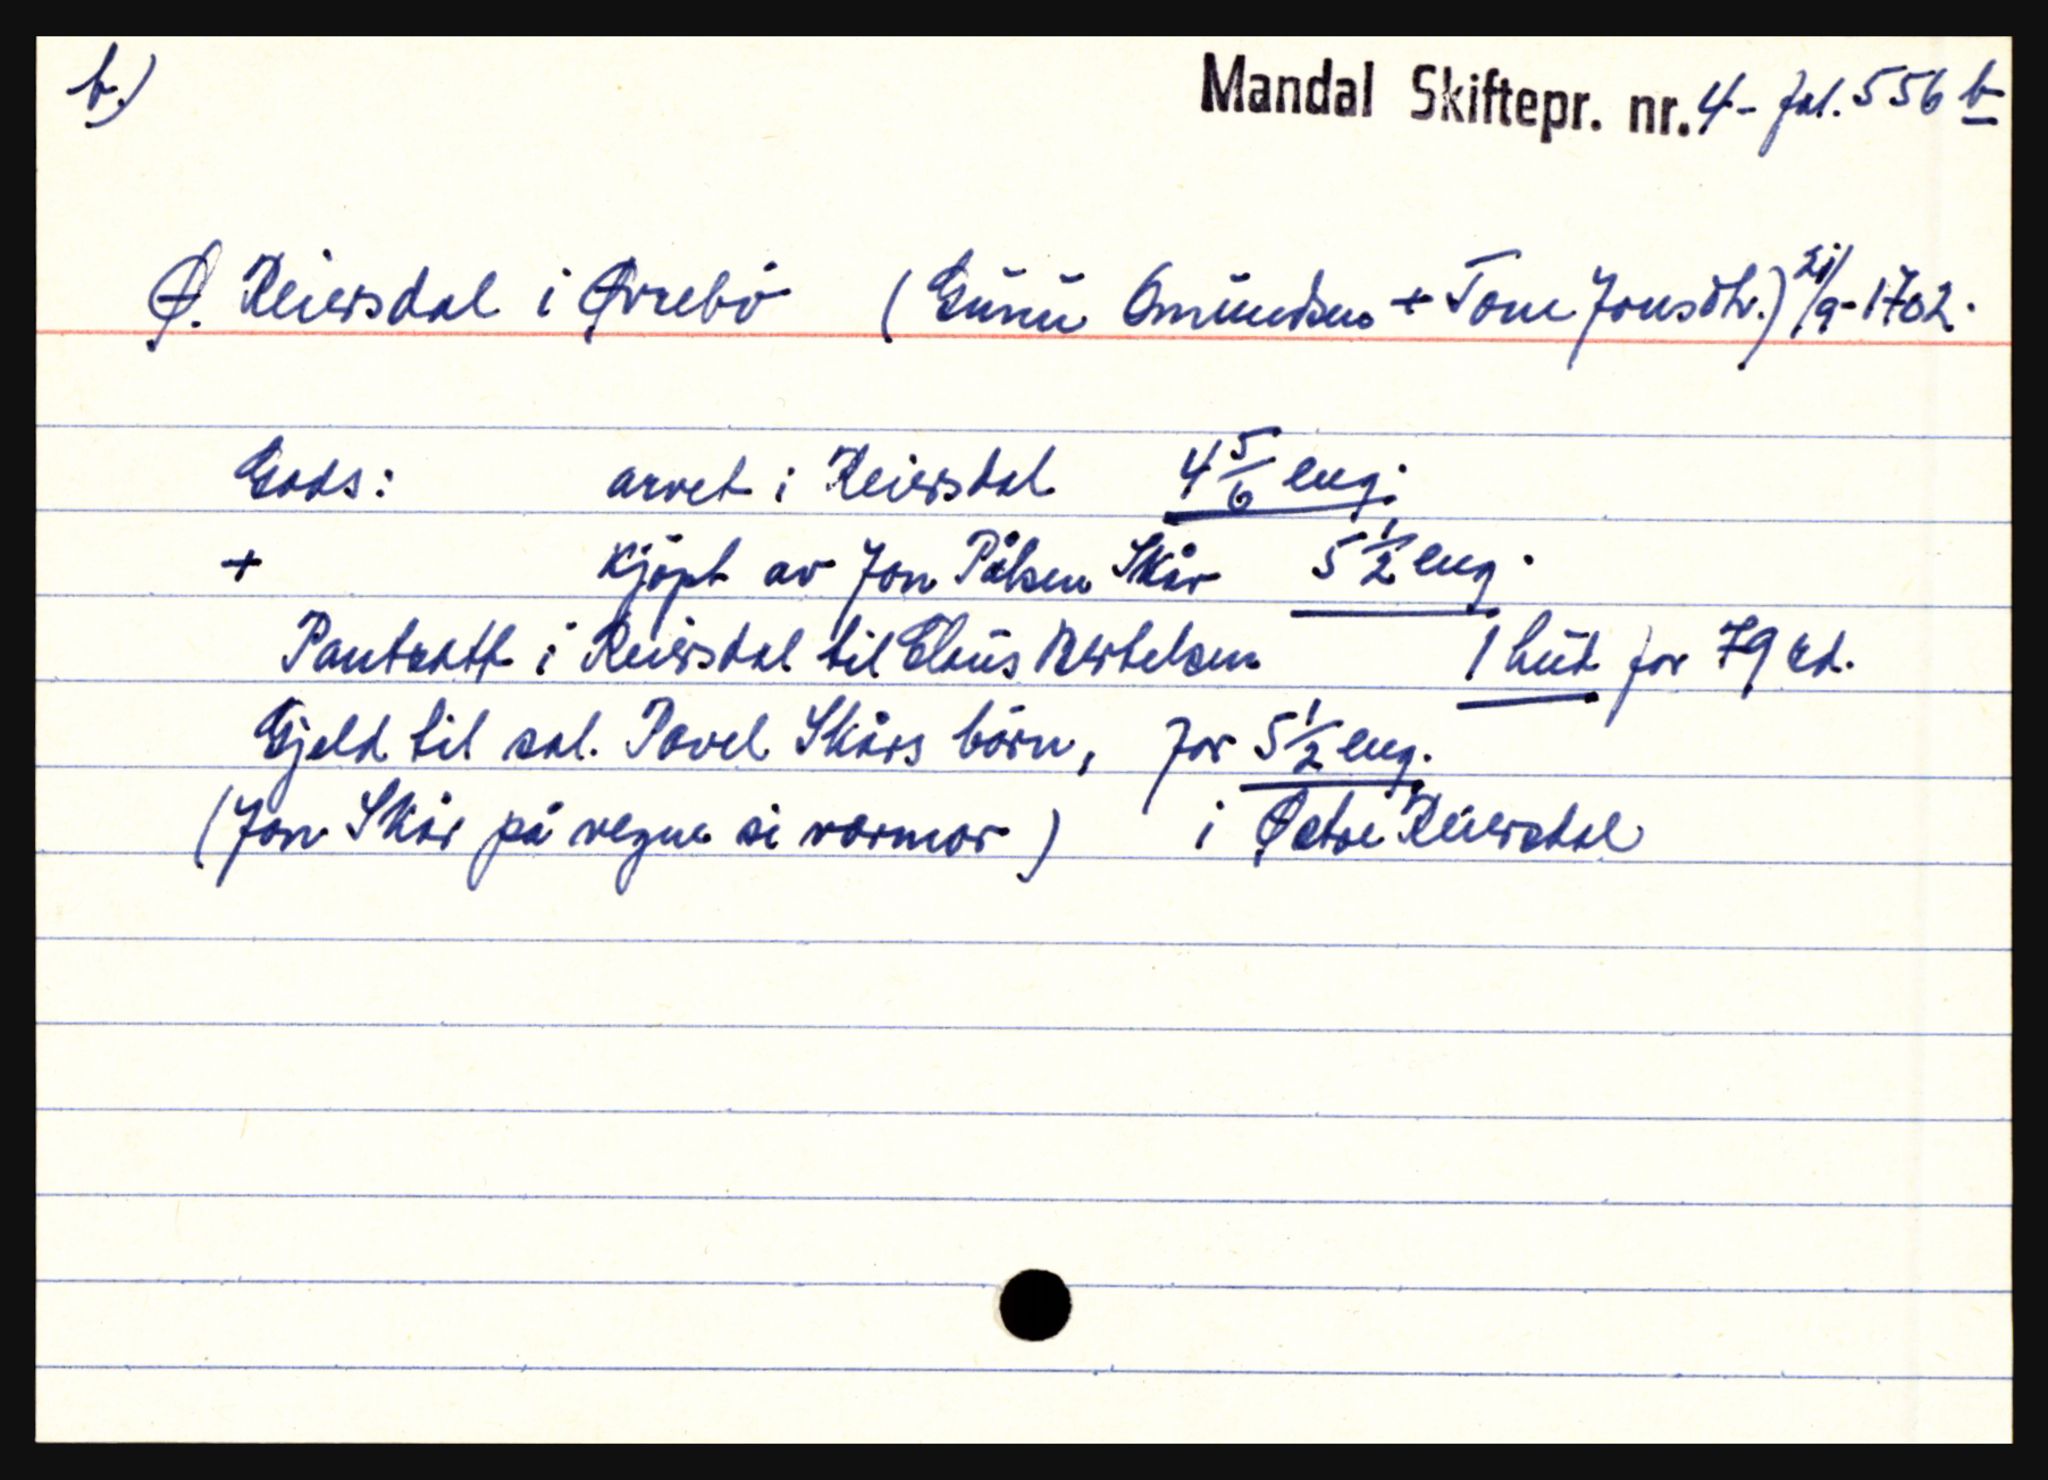 b.)
Mandal Skiftepr. nr. 4 - fol. 556 b
Ø. Reiersdal i Øvrebö (Gunu Omundsen + Tone Jonsdtr.) 21/9-1702.
Gods: arvet i Reiersdal 4 5/6 eng.
+ Kjöpt av Jon Pålsen Skår 5 1/2 eng.
Pantsatt i Reiersdal til Claus Bertelsen 1 hud for 79 rd.
Gjeld til sal. Povel Skårs börn, for 5 1/2 eng.
(Jon Skår på vegne si vormor) i Östre Reiersdal